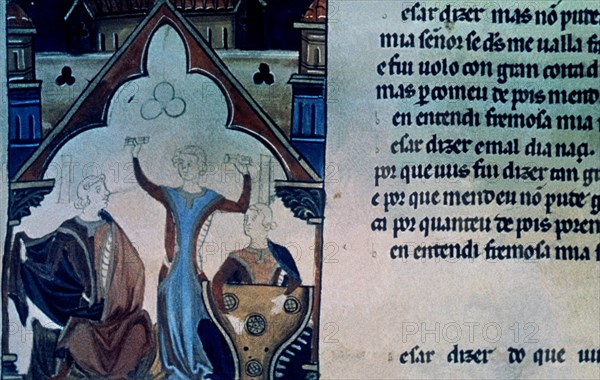 esar dizer mas nõ pute
mia señor se d̃s me ualla fr
e fui uolo con gran coita d
mas p̱ comeu de pois mend
en entendi fremosa mia
esar dizer e mal dia naçi.
por que uus fui dizer tan gr
e por que mend eu nõ pud e
ca por quant eu de pois poren
en entendi fremosa mia s
esar dizer do que uu